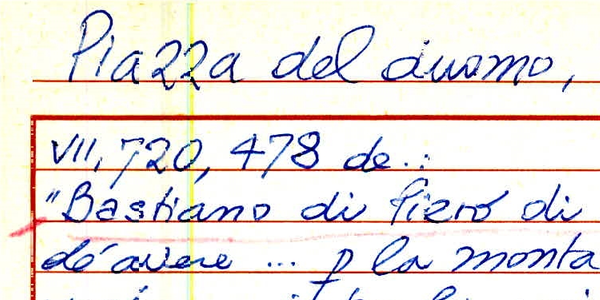 Piazza del duomo,
VII, 720, 478 de..:
"Bastiano di Piero di
dé avere ... p la monta